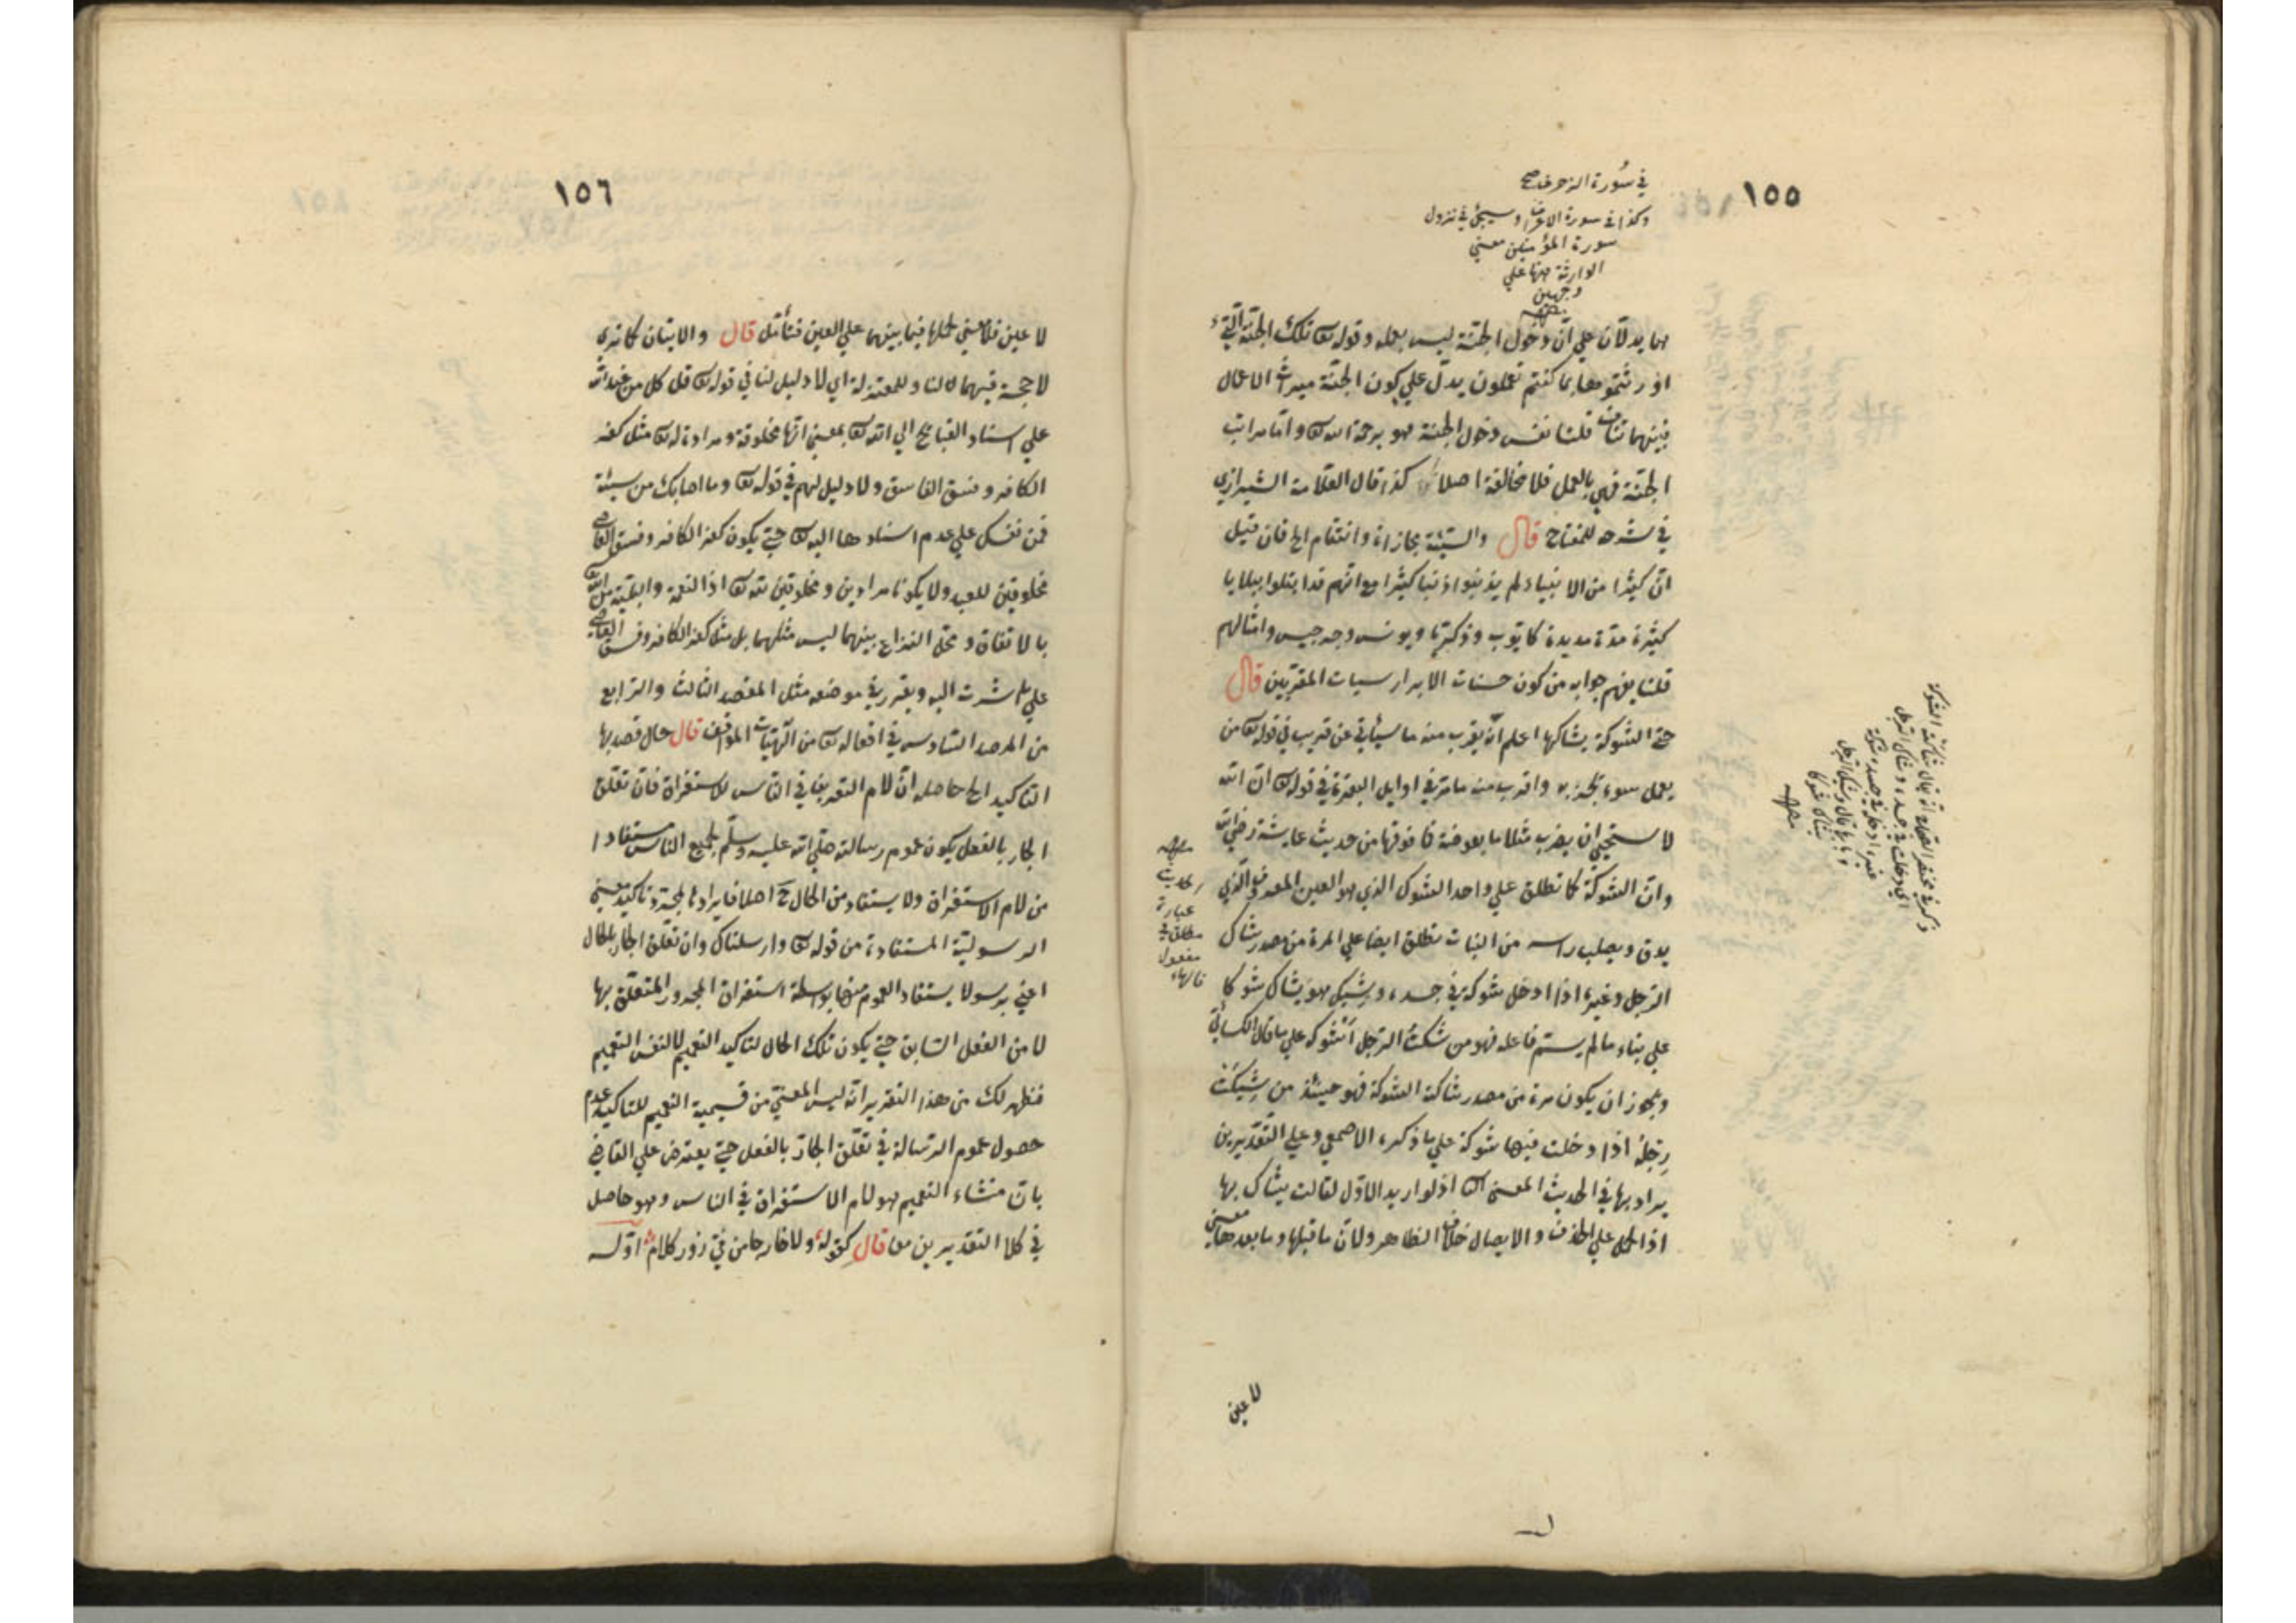 ١٥٥
في سورة الزخرف صح
وكذا في سورة الاعراف وسيجئ في نزول
سورة المؤمنين معنى
الوارثة منها على
وجهين
مما يدلان على ان دخول الجنة ليس بعمله وقوله تع تلك الجنة التي
اورثتموها بما كنتم تعملون يدل على كون الجنة ميراث الاعمال
فبينهما تناف قلنا نفس دخول الجنة هو برحمة الله تع واما مراتب
الجنة فهي بالعمل فلا مخالفة اصلا كذا قال العلامة الشيرازي
في شرحه للمفتاح قال والسيئة مجازاة وانتقام الخ فان قيل
ان كثيرا من الانبياء لم يذنبوا ذنبا كثيرا مع انهم قد ابتلوا ببلايا
كثيرة مدة مديدة كايوب وذكريا ويونس وجرجيس وامثالهم
قلنا يفهم جوابه من كون حسنات الابرار سيات المقربين قال
حتى الشوكة يشاكها اعلم انه يقرب منه ما سيأتي عن قريب في قوله تع من
يعمل سوء يجز به واقرب منه ما مر في اوايل البقرة في قوله تع ان الله
لا يستحيي ان يضرب مثلا ما بعوضة فما فوقها من حديث عايشة رضي الله
وان الشوكة كما تطلق على واحد الشوك الذي هو العين المعروف والذي
يدق ويصلب راسه من النبات تطلق ايضا على المرة من مصدر شاك
الرجل وغيره اذا ادخل شوكة في جسده وشيك هو يشاك شوكا
على بناء ما لم يسم فاعله فهو من شكت الرجل اشوكه على ما قال الكسائي
ويجوز ان يكون مرة من مصدر شاكته الشوكة فهو حينئذ من شيكت
رجله اذا دخلت فيها شوكة على ما ذكره الاصمعي وعلى التقديرين
يراد بها في الحديث المعنى الثا اذ لو اريد الاول لقالت يشاك بها
اذ الحمل على الحذف والايصال خلاف الظاهر ولان ما قبلها وما بعدها معنى
لا عين
ذكر في مختصر الصحاح انه يقال شاكته الشوكة
اي دخلت في جسده وشاك الرجل
غيره ادخل في جسده شوكة
وبابهما قال وشيك الرجل
يشاك شوكا
عبارة
مطلق
مفعول
١٥٦
لا عين فلا معنى لحملها فيما بينهما على العين فتأمل قال والايتان كما ترى
لا حجة فيهما لنا وللمعتزلة اي لا دليل لنا في قوله تع قل كل من عند الله
على اسناد القبايح الى الله تع بمعنى انها مخلوقة ومرادة له تع مثل كفر
الكافر وفسق الفاسق ولا دليل لهم في قوله تع وما اصابك من سيئة
فمن نفسك على عدم اسنادها اليه تع حتى يكون كفر الكافر وفسق الفاسق
مخلوقين للعبد ولا يكونا مرادين ومخلوقين لله تع اذ النعمة والبلية من الله
بالاتفاق ومحل النزاع بينهما ليس مثلهما بل مثل كفر الكافر وفسق الفاسق
على ما اشرت اليه ويقرر في موضعه مثل المقصد الثالث والرابع
من المرصد السادس في افعاله تع من الهيات المواقف قال حال قصد بها
التاكيد الخ حاصله ان لام التعريف في الناس للاستغراق فان تعلق
الجار بالفعل يكون عموم رسالته صلى الله عليه وسلم لجميع الناس مستفادا
من لام الاستغراق ولا يستفاد من الحال ح اصلا فايرادها لمجرد تاكيد معنى
الرسولية المستفادة من قوله تع وارسلناك وان تعلق الجار بالحال
اعني برسولا يستفاد العموم منها بواسطة استغراق المجرور المتعلق بها
لا من الفعل السابق حتى يكون تلك الحال لتاكيد التعميم لا لنفس التعميم
فظهر لك من هذا التقرير انه ليس المعنى من قسيمية التعميم للتاكيد عدم
حصول عموم الرسالة في تعلق الجار بالفعل حتى يعترض على القاضي
بان منشاء التعميم هو لام الاستغراق في الناس وهو حاصل
في كلا التقديرين معا قال كقوله ولا خارجا من في زور كلام اوله